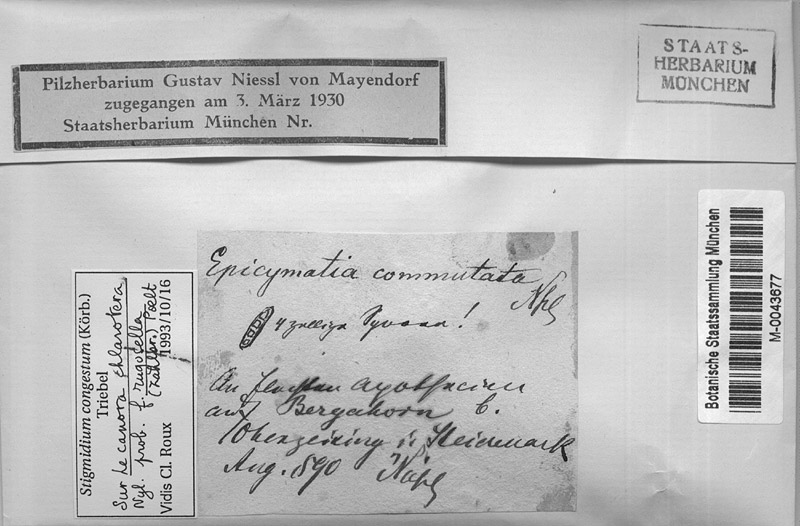 Pilzherbarium Gustav Niessl von Mayendorf
zugegangen am 3. März 1930
Staatsherbarium München Nr.
STAATS-
HERBARIUM
MÜNCHEN
Epicymatia commutata
Nssl
4 zellige Sporen!
An Apothecien
auf Bergahorn b.
Oberzeiring in Steiermark
Aug. 1890 Nssl
Stigmidium congestum (Körb.)
Triebel
Sur Lecanora chlarotera
Nyl. prob. f. rugosella
(Zahlbr.) Poelt
Vidis Cl. Roux 1993/10/16
Botanische Staatssammlung München
M-0043677